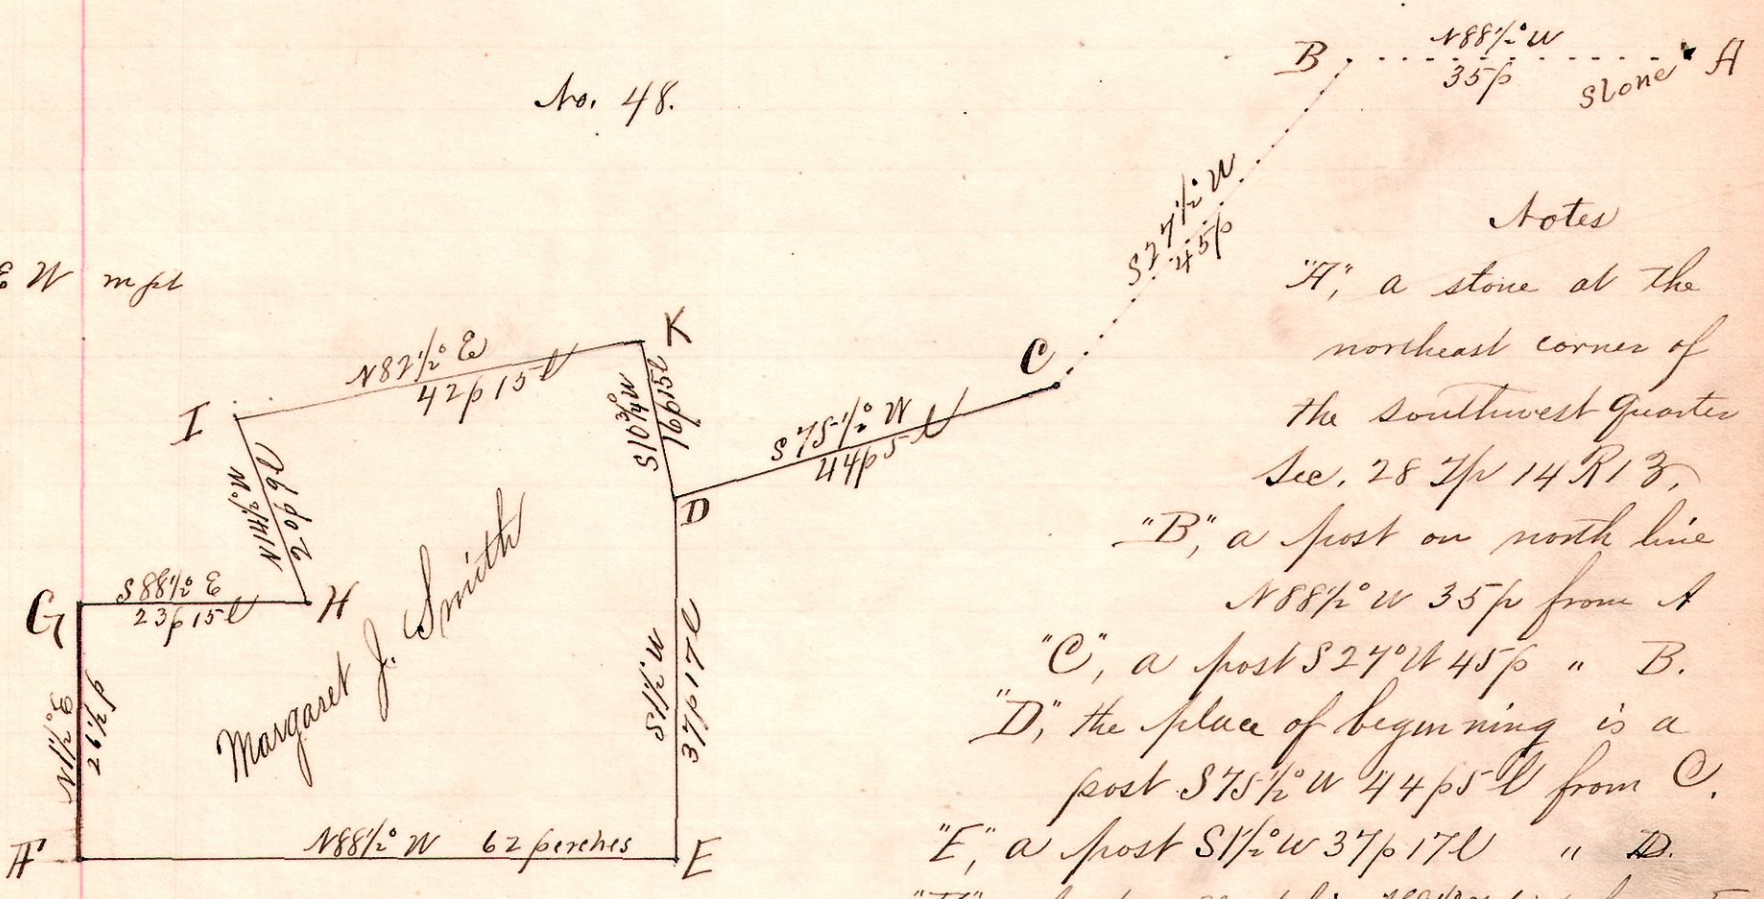 No. 48.
B
N88½°W
35p
Stone
A
S27½°W
45p
C
E W mpt
K
N82½°E
42p15l
I
S10¾°W
16p15l
S75½°W
44p5l
D
N14½°W
20p9l
G
S88½°E
23p15l
H
N1½°E
26½p
Margaret J. Smith
S1½W
37p17l
F
N88½°W 62 perches
E
Notes
"A", a stone at the
northeast corner of
the southwest quarter
Sec. 28 Tp 14 R13,
"B", a post on north line
N88½°W 35p from A
"C", a post S27°W 45p " B.
"D", the place of beginning is a
post S75½°W 44p5l from C.
"E", a post S1½°W 37p17l " D.